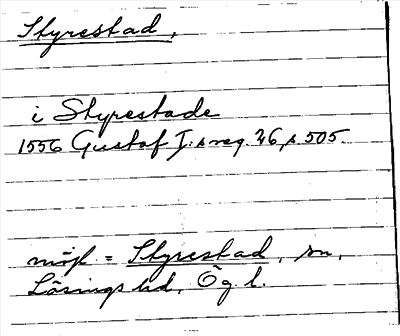 Styrestad,
i Styrestade
1556 Gustaf I:s reg. 26, s. 505.
möjl = Styrestad, sn,
Lösings hd, Ög. l.